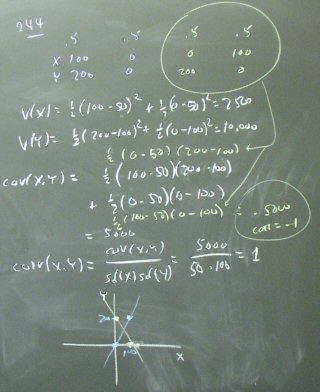 244
.5 .5 .5 .5
X 100 0 0 100
Y 200 0 200 0
V(X) = ½(100-50)² + ½(0-50)² = 2500
V(Y) = ½(200-100)² + ½(0-100)² = 10,000
½(0-50)(200-100)
cov(X,Y) = ½(100-50)(200-100)
+ ½(0-50)(0-100)
½(100-50)(0-100) = -5000
= 5000 corr = -1
corr(X,Y) = cov(X,Y) / sd(X)sd(Y) = 5000 / 50·100 = 1
Y
200
100
X